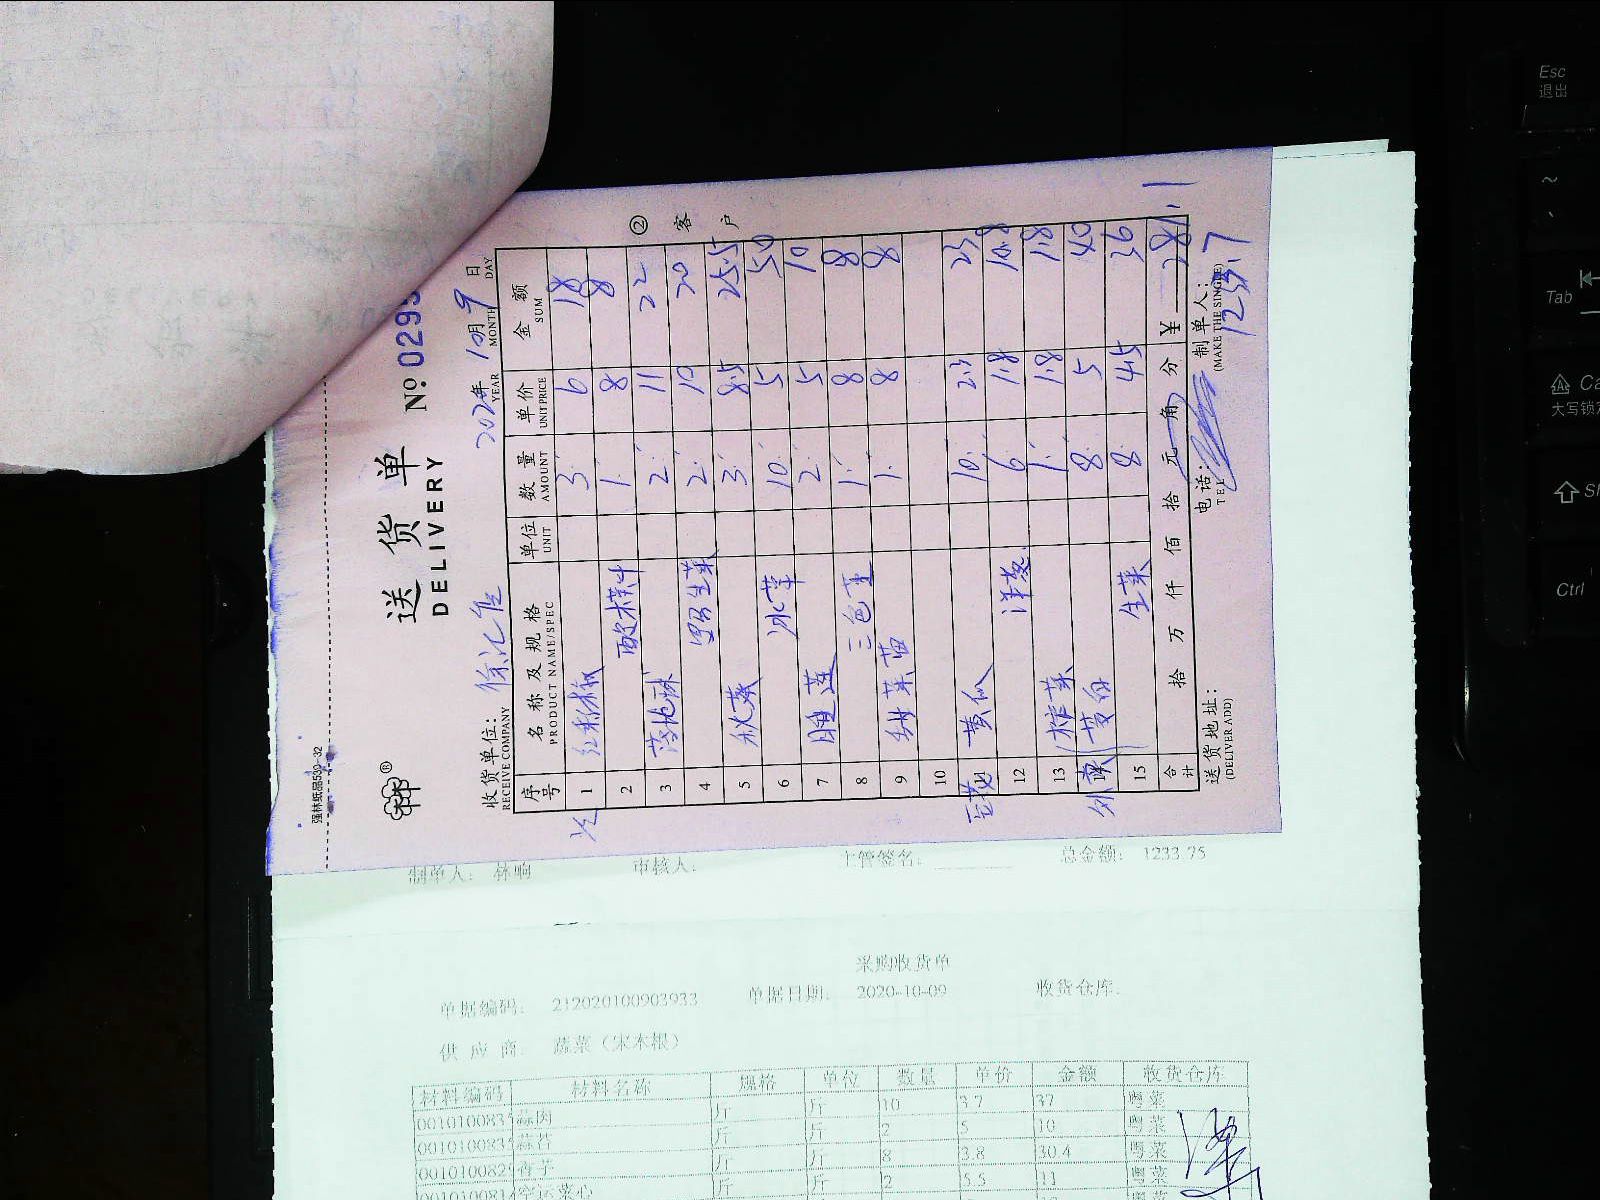 强林纸品530-32
送货单 No 0295
DELIVERY
收货单位: 徐汇店 2020年 10月 9日
RECEIVE COMPANY YEAR MONTH DAY
序号 名称及规格 单位 数量 单价 金额
PRODUCT NAME/SPEC UNIT AMOUNT UNIT PRICE SUM
1 红彩椒 3 6 18
2 8 8
3 2 11 22
4 生菜 2 10 20
5 秋葵 3 8.5 25.5
6 冰草 10 5 50
7 2 5 10
8 三色堇 1 8 8
9 甜菜苗 1 8 8
10
11 黄瓜 10 2.3 23
12 洋葱 6 1.8 10.8
13 榨菜 1 1.8 1.8
14 茭白 8 5 40
15 生菜 8 4.5 36
合计 拾 万 仟 佰 拾 元 角 分 ¥ 281.1
送货地址: 电话: 制单人:
(DELIVER ADD) TEL (MAKE THE SINGLE)
1233.7
② 客户
制单人: 林响 审核人: 主管签名: 总金额: 1233.75
采购收货单
单据编码: 212020100903933 单据日期: 2020-10-09 收货仓库:
供应商: 蔬菜（宋本根）
材料编码 材料名称 规格 单位 数量 单价 金额 收货仓库
001010083 蒜肉 斤 斤 10 3.7 37 粤菜
001010083 蒜苔 斤 斤 2 5 10 粤菜
001010082 香芋 斤 斤 8 3.8 30.4 粤菜
空运菜心 斤 斤 2 5.5 11 粤菜
Esc
退出
~
Tab
Ca
大写锁定
Ctrl